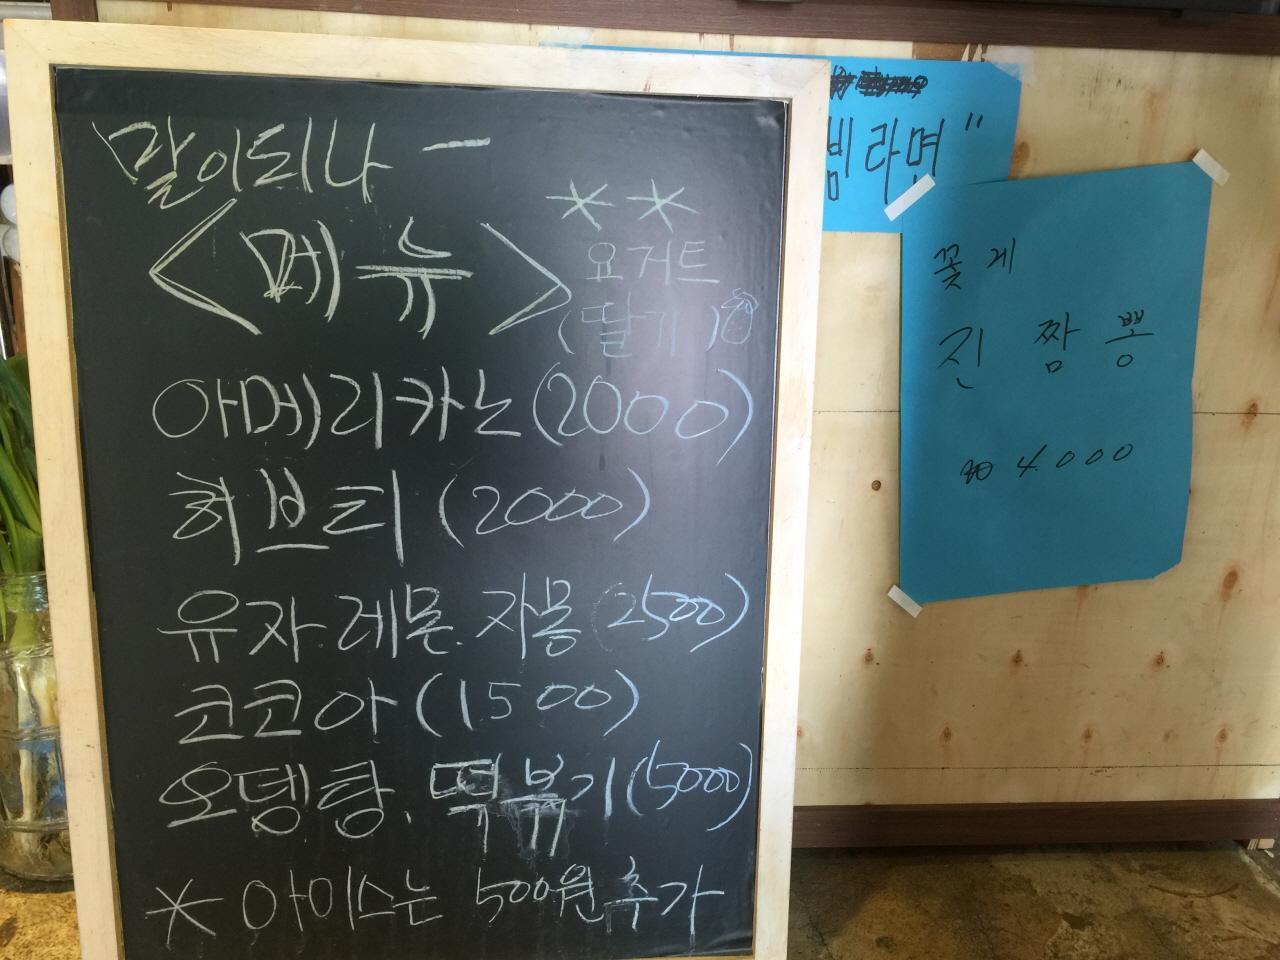 말이되나 ー
<메뉴>
** 
요거트
(딸기)
아메리카노(2000)
허브티 (2000)
유자.레몬.자몽(2500)
코코아(1500)
오뎅탕. 떡볶기(5000)
* 아이스는 500원추가
빔라면"
꽃게
진 짬 뽕
4.000